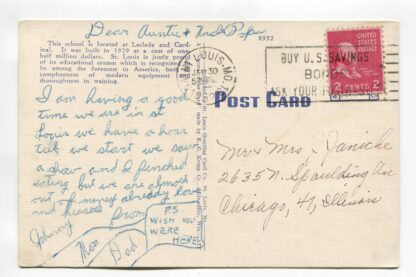 Dear Auntie + Uncle
This school is located at Laclede and Card-
inal. It was built in 1929 at a cost of one-
half million dollars. St. Louis is justly proud
of its educational system which is recognized to
be among the foremost in America, both for
completeness of modern equipment and
thoroughness in training.
8932
ST. LOUIS, MO.
30
BUY U.S. SAVINGS
BONDS
ASK YOUR
UNITED STATES POSTAGE
2 CENTS 2
POST CARD
I am having a good
time we are in St
Louis we have a hour
till we start we saw
a show and I finched
eating but we are almost
out of money already love
and kisses
from
Johnny
Mom
Dad
PS
WISH YOU
WERE
HERE
Mr + Mrs. Janicke
2635 N. Spaulding Ave
Chicago, 47, Illinois